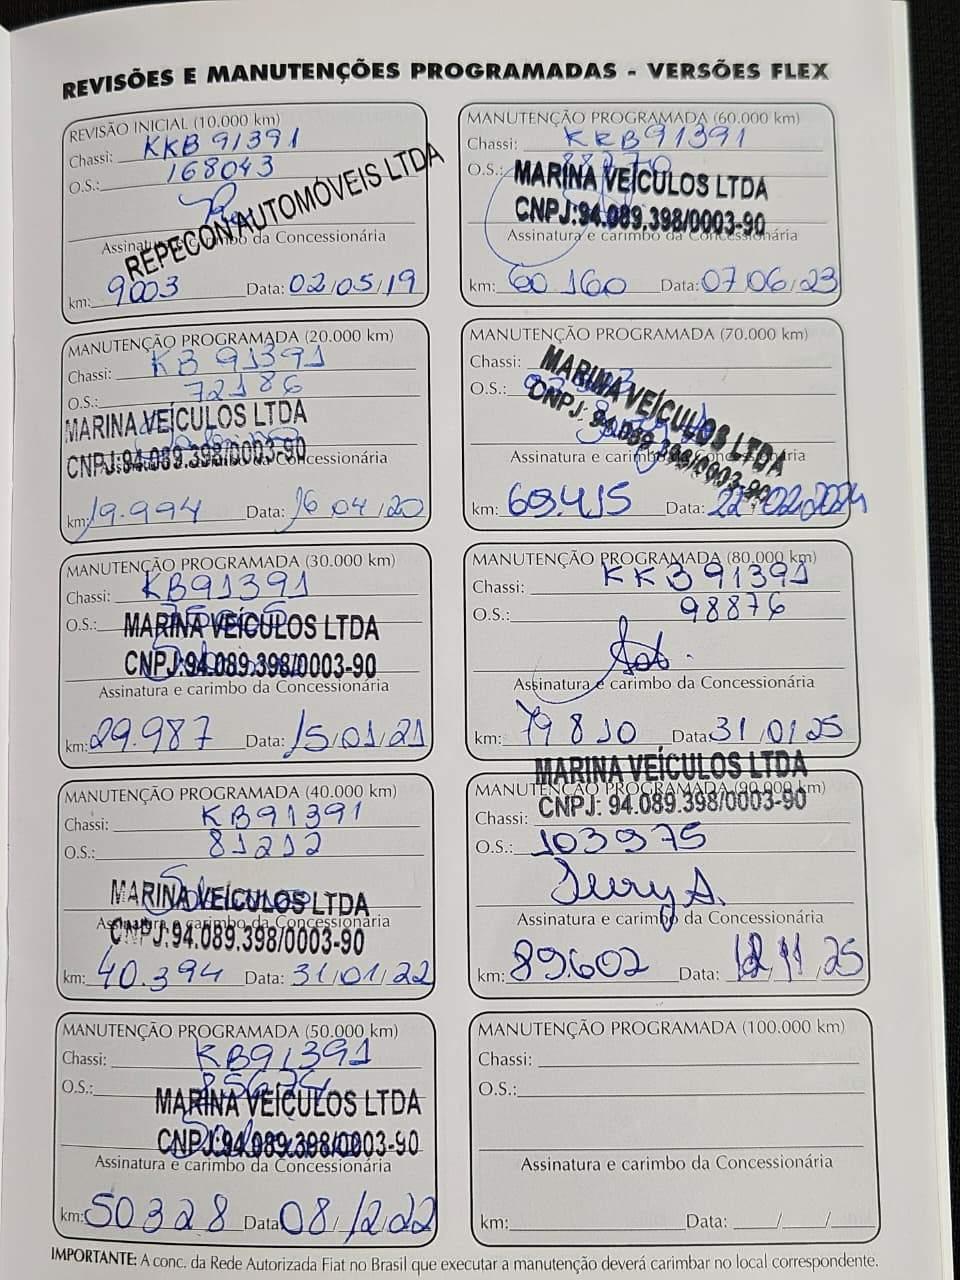 REVISÕES E MANUTENÇÕES PROGRAMADAS - VERSÕES FLEX
REVISÃO INICIAL (10.000 km)
Chassi: KKB 91391
O.S.: 168043
REPECON AUTOMÓVEIS LTDA
Assinatura e carimbo da Concessionária
km: 9003 Data: 02/05/19
MANUTENÇÃO PROGRAMADA (20.000 km)
Chassi: KB 91391
O.S.: 72186
MARINA VEÍCULOS LTDA
CNPJ:94.089.398/0003-90
Assinatura e carimbo da Concessionária
km: 19.994 Data: 16/04/20
MANUTENÇÃO PROGRAMADA (30.000 km)
Chassi: KB91391
O.S.:
MARINA VEÍCULOS LTDA
CNPJ:94.089.398/0003-90
Assinatura e carimbo da Concessionária
km: 29.987 Data: 15/01/21
MANUTENÇÃO PROGRAMADA (40.000 km)
Chassi: KB91391
O.S.: 81212
MARINA VEÍCULOS LTDA
Assinatura e carimbo da Concessionária
CNPJ:94.089.398/0003-90
km: 40.394 Data: 31/01/22
MANUTENÇÃO PROGRAMADA (50.000 km)
Chassi: KB91391
O.S.:
MARINA VEÍCULOS LTDA
CNPJ:94.089.398/0003-90
Assinatura e carimbo da Concessionária
km: 50328 Data: 08/12/22
MANUTENÇÃO PROGRAMADA (60.000 km)
Chassi: KKB91391
O.S.:
MARINA VEÍCULOS LTDA
CNPJ:94.089.398/0003-90
Assinatura e carimbo da Concessionária
km: 60.160 Data: 07/06/23
MANUTENÇÃO PROGRAMADA (70.000 km)
Chassi:
O.S.:
MARINA VEÍCULOS LTDA
CNPJ: 94.089.398/0003-90
Assinatura e carimbo da Concessionária
km: 69.415 Data: 22/02/2024
MANUTENÇÃO PROGRAMADA (80.000 km)
Chassi: KKB91391
O.S.: 98876
Assinatura e carimbo da Concessionária
km: 79810 Data: 31/01/25
MARINA VEÍCULOS LTDA
MANUTENÇÃO PROGRAMADA (90.000 km)
CNPJ: 94.089.398/0003-90
Chassi:
O.S.: 103975
Assinatura e carimbo da Concessionária
km: 89.602 Data: 12/11/25
MANUTENÇÃO PROGRAMADA (100.000 km)
Chassi:
O.S.:
Assinatura e carimbo da Concessionária
km: Data: / /
IMPORTANTE: A conc. da Rede Autorizada Fiat no Brasil que executar a manutenção deverá carimbar no local correspondente.